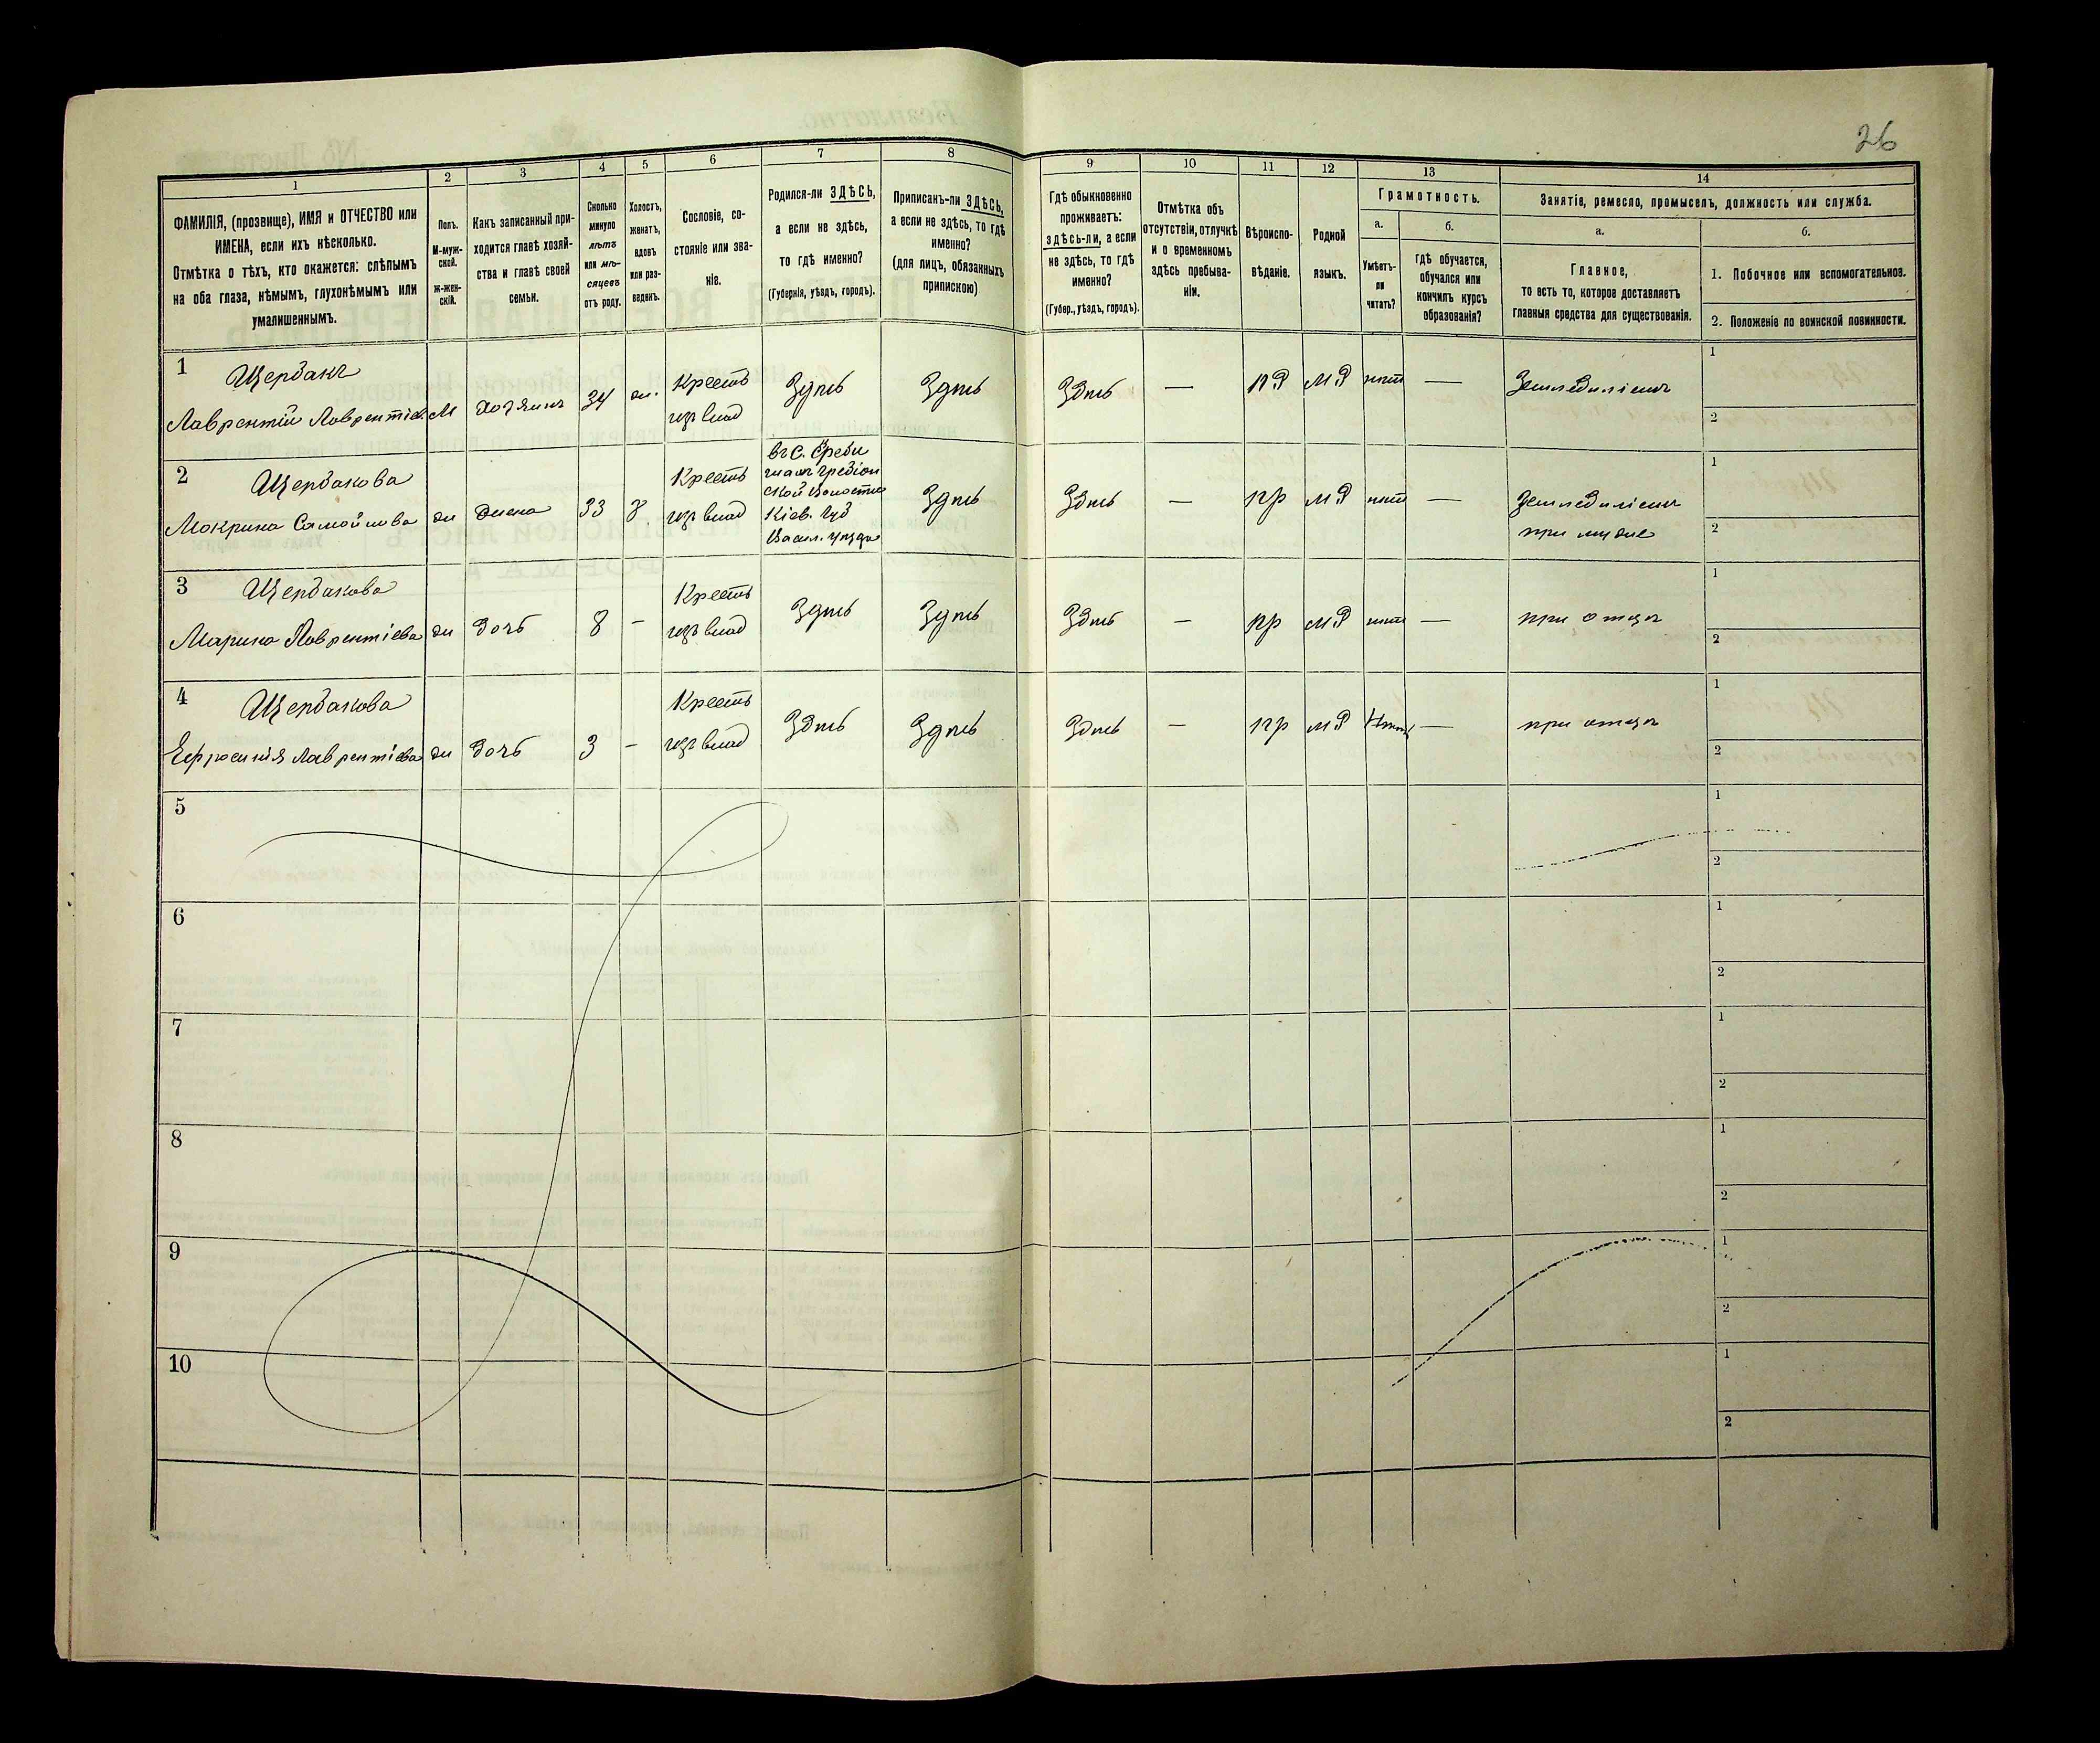 26
1
2
3
4
5
6
7
8
9
10
11
12
13
14
ФАМИЛІЯ, (прозвище), ИМЯ и ОТЧЕСТВО или
ИМЕНА, если ихъ нѣсколько.
Отмѣтка о тѣхъ, кто окажется: слѣпымъ
на оба глаза, нѣмымъ, глухонѣмымъ или
умалишеннымъ.
Полъ.
М-муж-
ской.
Ж-жен-
скій.
Какъ записанный при-
ходится главѣ хозяй-
ства и главѣ своей
семьи.
Сколько
минуло
лѣтъ
или мѣ-
сяцевъ
отъ роду.
Холостъ,
женатъ,
вдовъ
или раз-
веденъ.
Сословіе, со-
стояніе или зва-
ніе.
Родился-ли ЗДѢСЬ,
а если не здѣсь,
то гдѣ именно?
(Губернія, уѣздъ, городъ).
Приписанъ-ли ЗДѢСЬ,
а если не здѣсь, то гдѣ
именно?
(для лицъ, обязанныхъ
припискою)
Гдѣ обыкновенно
проживаетъ:
здѣсь-ли, а если
не здѣсь, то гдѣ
именно?
(Губер., уѣздъ, городъ).
Отмѣтка объ
отсутствіи, отлучкѣ
и о временномъ
здѣсь пребыва-
ніи.
Вѣроиспо-
вѣданіе.
Родной
языкъ.
Грамотность.
а.
Умѣетъ-
ли
читать?
б.
гдѣ обучается,
обучался или
кончилъ курсъ
образованія?
Занятіе, ремесло, промыселъ, должность или служба.
а.
Главное,
то есть то, которое доставляетъ
главныя средства для существованія.
б.
1. Побочное или вспомогательное.
2. Положеніе по воинской повинности.
1 Щербакъ
Лаврентій Лаврентіев. М хозяинъ 34 ж. Крест Здѣсь Здѣсь Здѣсь — нѣт — Земледиліемъ 1
2
2 Щербакова
Мокрина Самойлова ж жена 33 Крест
Кіев. губ
Васил. уѣзда
Здѣсь Здѣсь — пр нѣт — Земледиліемъ
при мужѣ
1
2
3 Щербакова
Марина Лаврентіева ж дочь 8 - Крест Здѣсь Здѣсь Здѣсь — пр нѣт — при отцѣ 1
2
4 Щербакова
Ефросинія Лаврентіева ж дочь 3 - Крест Здѣсь Здѣсь Здѣсь — пр Нѣт — при отцѣ 1
2
5 1
2
6 1
2
7 1
2
8 1
2
9 1
2
10 1
2